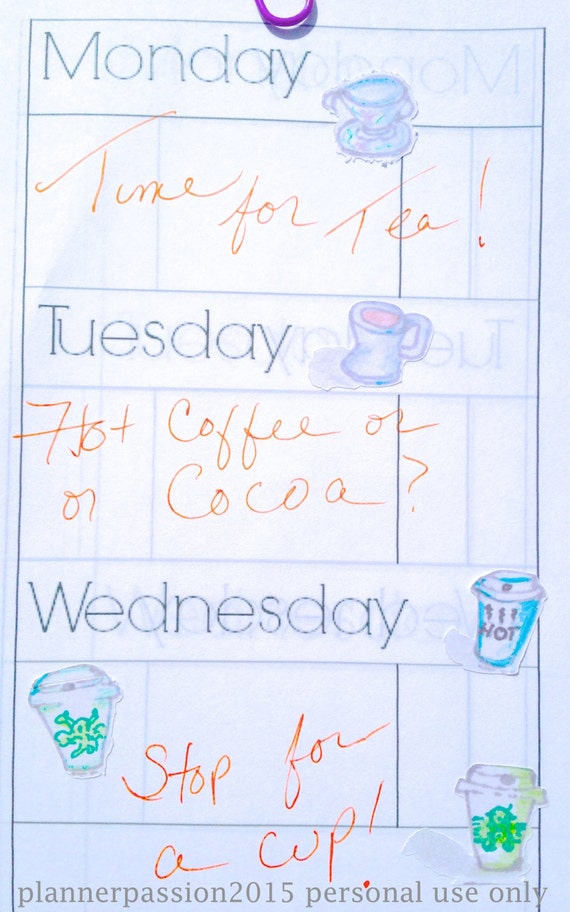 Monday
Time for Tea!
Tuesday
Hot Coffee or
or Cocoa?
Wednesday
HOT
Stop for
a cup!
plannerpassion2015 personal use only